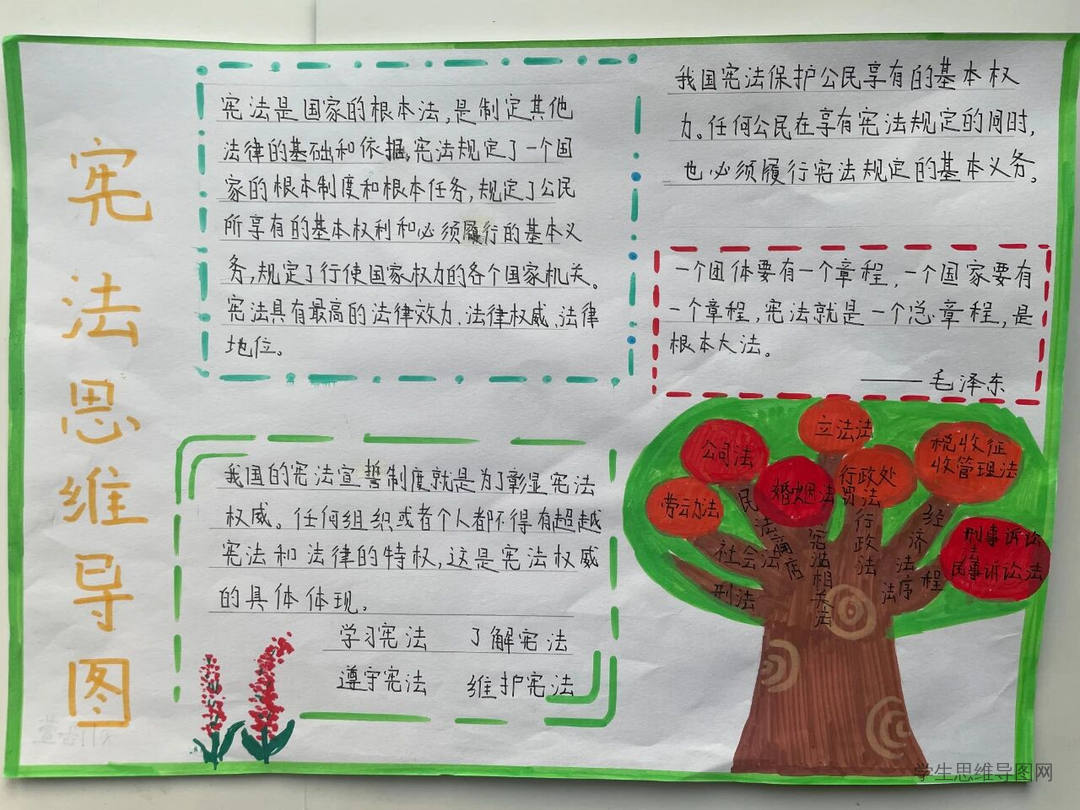 宪法思维导图
宪法是国家的根本法,是制定其他
法律的基础和依据,宪法规定了一个国
家的根本制度和根本任务,规定了公民
所享有的基本权利和必须履行的基本义
务,规定了行使国家权力的各个国家机关。
宪法具有最高的法律效力、法律权威、法律
地位。
我国宪法保护公民享有的基本权
力。任何公民在享有宪法规定的同时,
也必须履行宪法规定的基本义务。
一个团体要有一个章程,一个国家要有
一个章程,宪法就是一个总章程,是
根本大法。
——毛泽东
我国的宪法宣誓制度就是为了彰显宪法
权威。任何组织或者个人都不得有超越
宪法和法律的特权,这是宪法权威
的具体体现。
学习宪法 了解宪法
遵守宪法 维护宪法
立法法
公司法
税收征
收管理法
婚姻法
行政处
罚法
劳动法
刑事诉讼
法
民事诉讼法
民法商法
社会法
刑法
宪法相关法
行政法
经济法
程序法
学生思维导图网